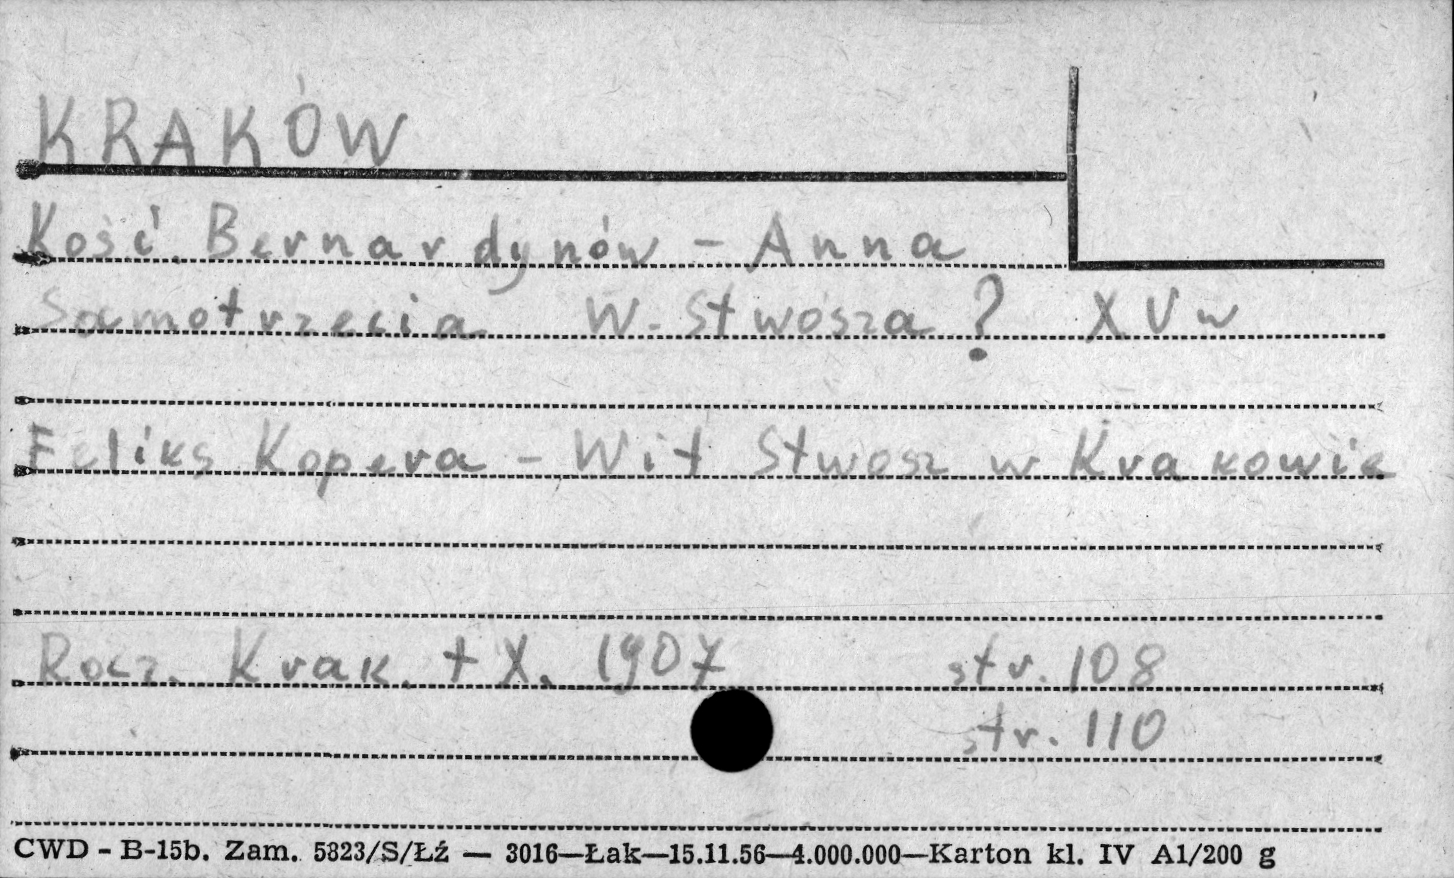 KRAKÓW
Kość. Bernardynów - Anna
Samotrzecia W. Stwosza ? XV w
Feliks Kopera - Wit Stwosz w Krakowie
Rocz. Krak. t X. 1907 str. 108
str. 110
CWD - B-15b. Zam. 5823/S/Łź — 3016—Łak—15.11.56—4.000.000—Karton kl. IV A1/200 g